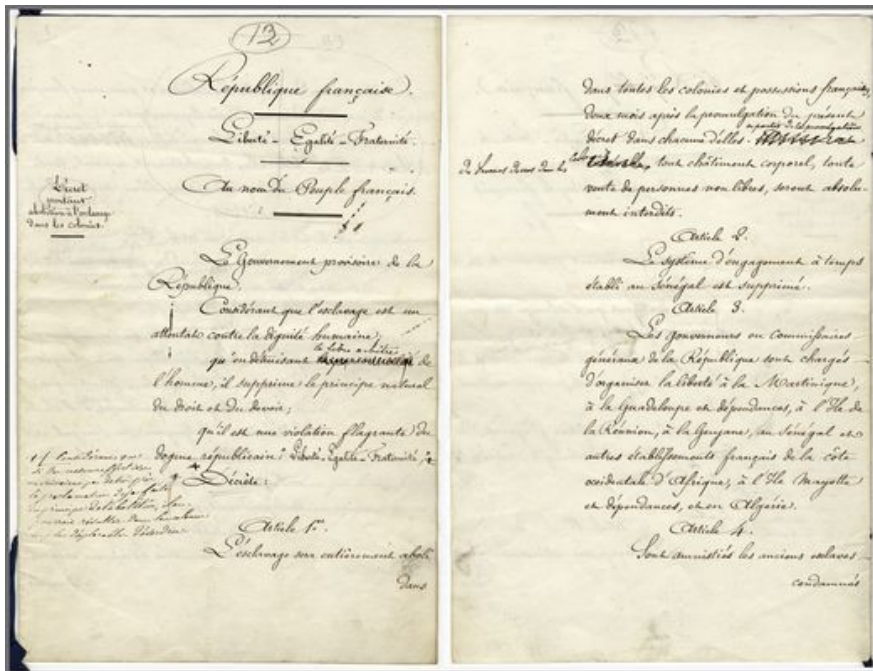 13
République française.
Liberté - Egalité - Fraternité.
Au nom du Peuple français.
Décret
portant
abolition de l'esclavage
dans les colonies.
Le Gouvernement provisoire de la
République,
Considérant que l'esclavage est un
attentat contre la dignité humaine;
qu'en détruisant le libre arbitre de
l'homme, il supprime le principe naturel
du droit et du devoir;
qu'il est une violation flagrante du
dogme républicain: Liberté, Egalité - Fraternité;
Considérant que
si des mesures effectives
la proclamation déjà faite
du principe de l'abolition,
Décrète:
Article 1er.
L'esclavage sera entièrement aboli
dans
dans toutes les colonies et possessions françaises,
deux mois après la promulgation du présent
décret dans chacune d'elles. à partir de la promulgation
du présent décret dans les colonies, tout châtiment corporel, toute
vente de personnes non libres, seront absolu-
ment interdits.
Article 2.
Le système d'engagement à temps
établi au Sénégal est supprimé.
Article 3.
Les gouverneurs ou Commissaires
généraux de la République sont chargés
d'organiser la liberté à la Martinique,
à la Guadeloupe et dépendances, à l'Ile de
la Réunion, à la Guyane, au Sénégal et
autres établissements français de la côte
occidentale d'Afrique, à l'Ile Mayotte
et dépendances, et en Algérie.
Article 4.
Sont amnistiés les anciens esclaves
condamnés